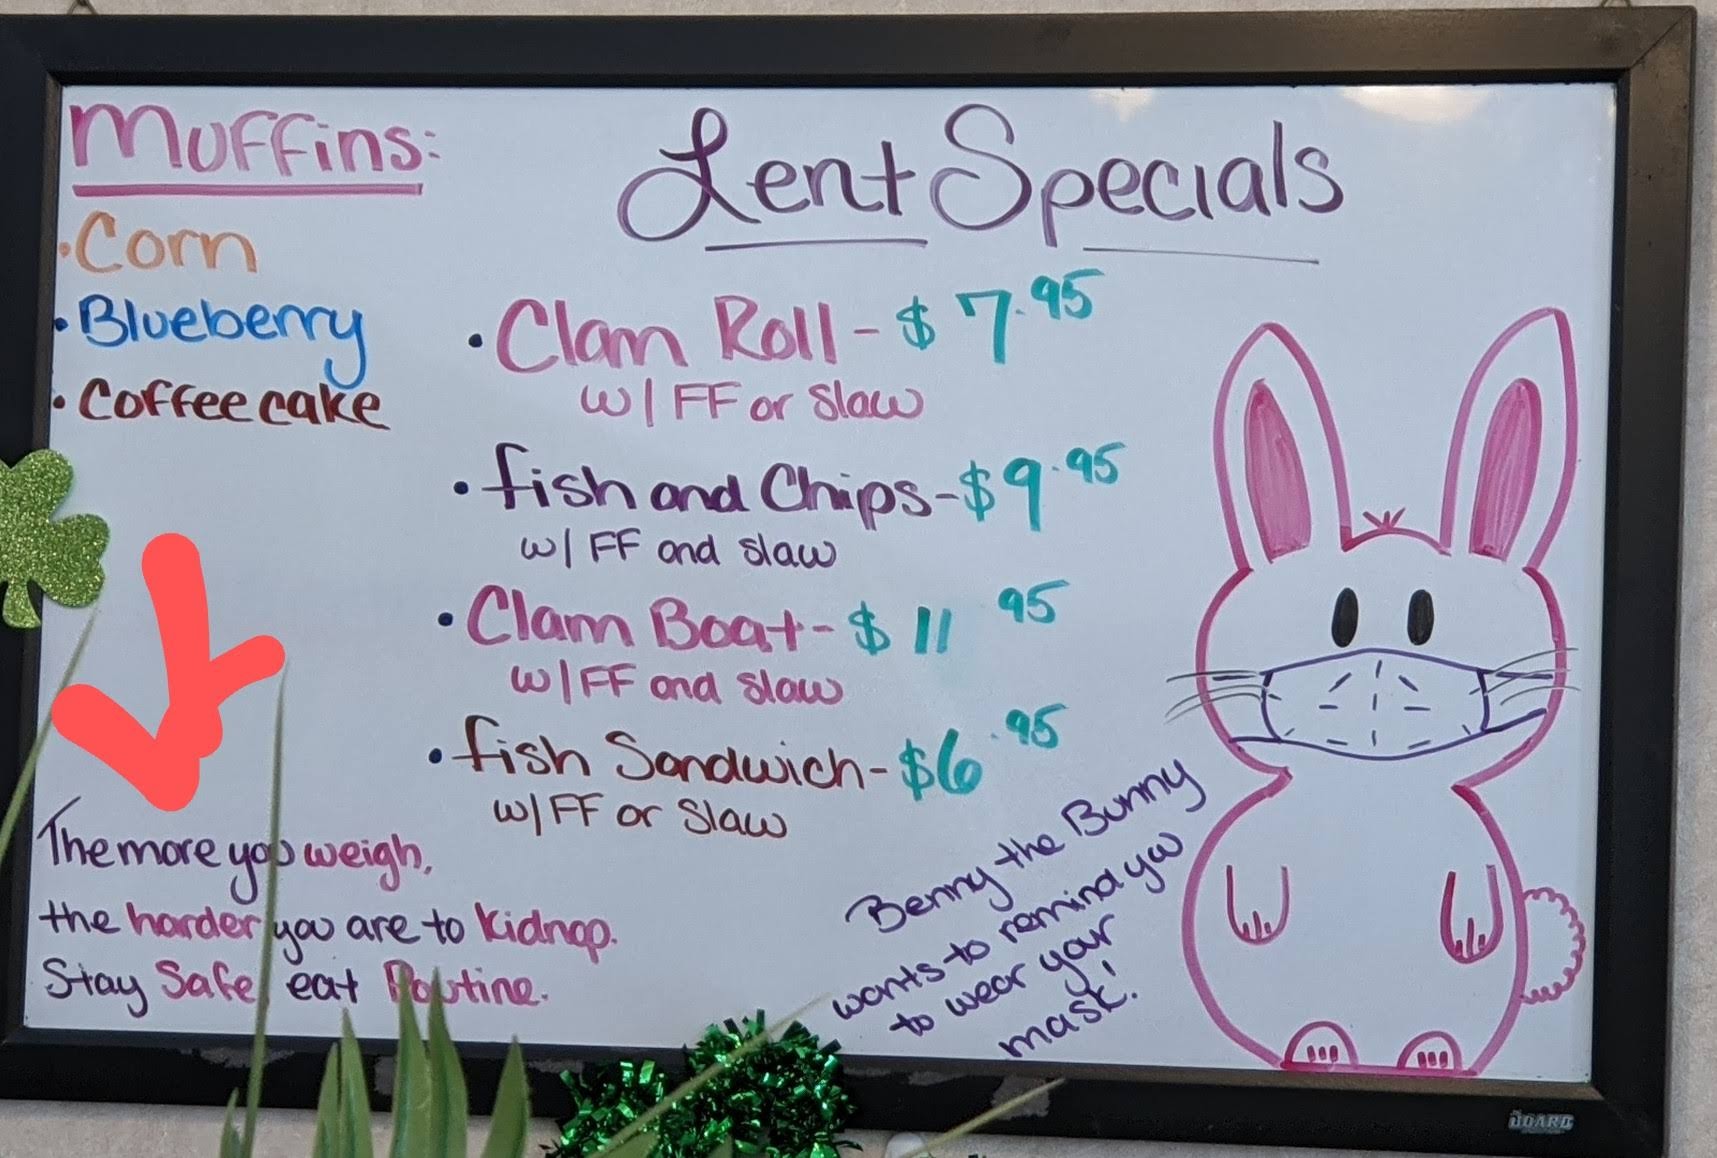 Muffins:
• Corn
• Blueberry
• Coffee cake
Lent Specials
• Clam Roll - $7.95
w/ FF or Slaw
• fish and Chips - $9.95
w/ FF and slaw
• Clam Boat - $11 95
w/ FF and slaw
• fish Sandwich - $6.95
w/ FF or Slaw
The more you weigh,
the harder you are to kidnap.
Stay Safe, eat Poutine.
Benny the Bunny
wants to remind you
to wear your
mask!
BOARD